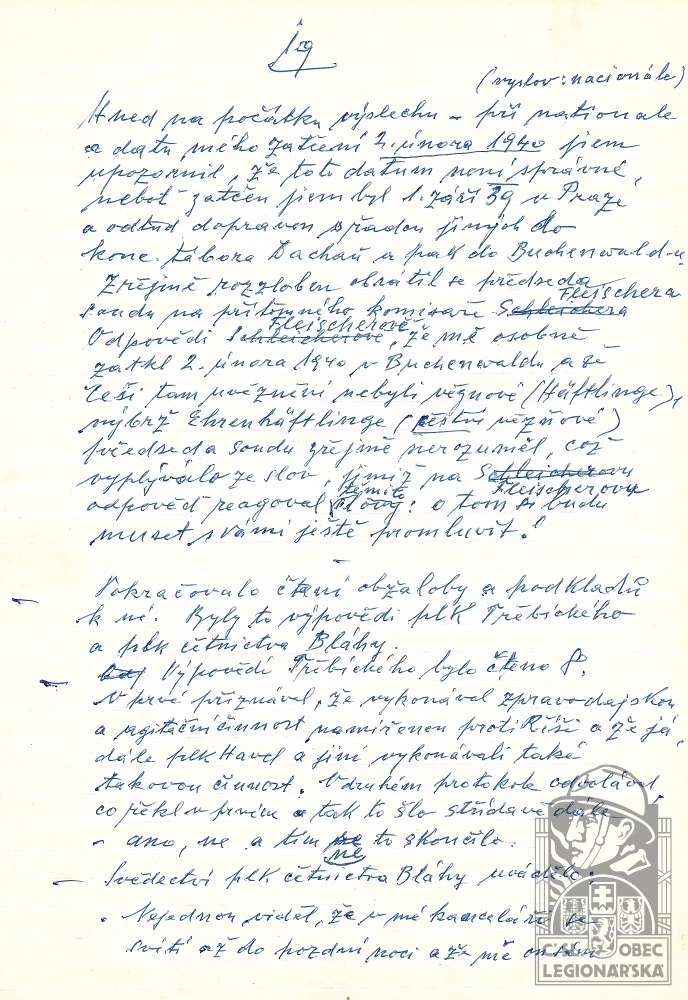 19
(vyslov: nacionále)
Hned na počátku výslechu – při nationale
a datu mého zatčení 2. února 1940 jsem
upozornil, že toto datum není správné,
neboť zatčen jsem byl 1. září 39 v Praze
a odtud dopraven s řadou jiných do
konc. tábora Dachau a pak do Buchenwaldu.
Zřejmě rozzloben obrátil se předseda
Fleischera
soudu na přítomného komisaře Schleichera
Fleischerově
Odpovědi Schleicherově, že mě osobně
zatkl 2. února 1940 v Buchenwaldu a že
Češi tam uvěznění nebyli vězňové (Häftlinge),
nýbrž Ehrenhäftlinge (čestní vězňové)
předseda soudu zřejmě nerozuměl, což
vyplývalo ze slov, jimiž na Schleicherovu
těmito Fleischerovu
odpověď reagoval slovy: o tom si budu
muset s vámi ještě promluvit!
Pokračovalo čtení obžaloby a podkladů
k ní. Byly to výpovědi plk Třebického
a plk četnictva Bláhy.
Výpovědí Třebického bylo čteno 8.
V prvé přiznával, že vykonával zpravodajskou
a agitační činnost namířenou proti Říši a že já,
dále plk Havel a jiní vykonávali také
takovou činnost. V druhém protokole odvolával,
co řekl v prvém a tak to šlo střídavě dále
– ano, ne a tím ne to skončilo.
ne
Svědectví plk četnictva Bláhy uvádělo:
Nejednou viděl, že v mé kanceláři se
svítí až do pozdní noci a že mě on sám
ČS. OBEC
LEGIONÁŘSKÁ